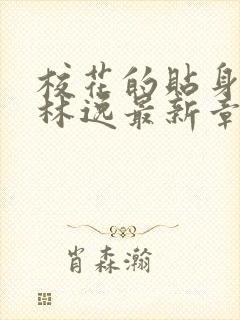 校花的贴身
林逸最新章
肖森瀚